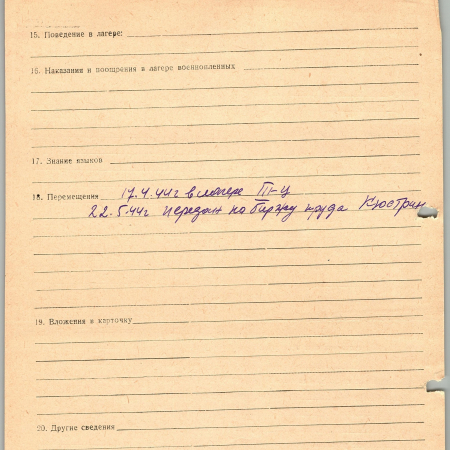 15. Поведение в лагере:
16. Наказания и поощрения в лагере военнопленных
17. Знание языков
18. Перемещения 17.4.44г в лагере III-Ц
22.5.44г передан на биржу труда Кюстрин
19. Вложения в карточку
20. Другие сведения